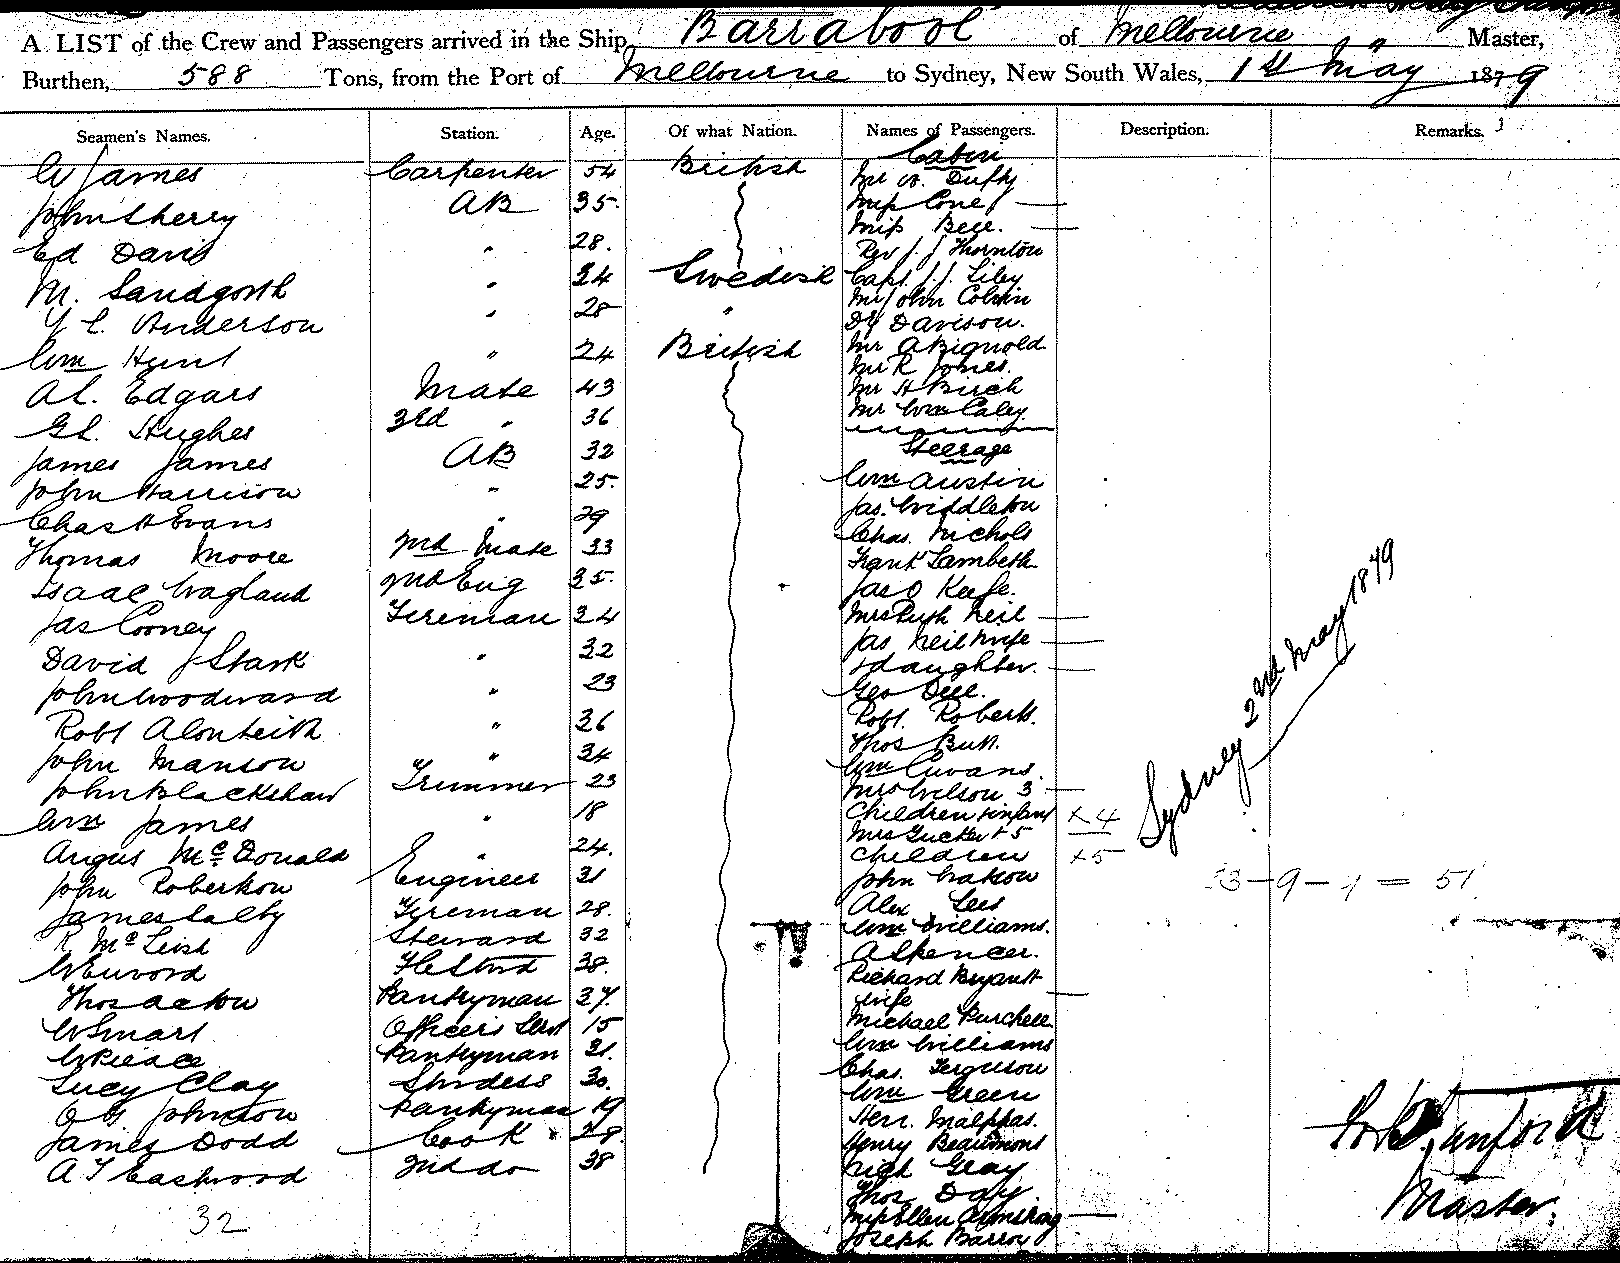 A LIST of the Crew and Passengers arrived in the Ship, Barrabool of Melbourne Master,
Burthen, 588 Tons, from the Port of Melbourne to Sydney, New South Wales, 1st May 1879
Seamen's Names. Station. Age. Of what Nation. Names of Passengers. Description. Remarks.
W James Carpenter 54 British
John Sherry AB 35
Ed Davis " 28.
M. Sandgorth " 24 Swedish
Anderson " 28 "
Wm Hunt " 24 British
A L. Edgars Mate 43
G L. Hughes 3rd " 36
James James AB 32
John Harrison " 25
Chas H Evans " 29
Thomas Moore 2nd Mate 33
Isaac Wagland 2nd Eng 35
Jas Cooney Fireman 24
David J Stark " 32
John Woodward " 23
Robt Monteith " 26
John Manson " 34
John Blackshaw Trimmer 23
Wm James " 18
Angus McDonald " 24.
John Robertson Engineer 31
James Salby Fireman 28.
R McLeish Steward 32
38.
Thos Acton Pantryman 37.
W Smart Officers Servt 15
W Pierce Pantryman 21.
Lucy Clay Stwdess 30.
Johnson Pantryman 19
James Dodd Cook 28.
A T Eastwood 2nd do 38
32
Cabin
Mr W. Duffy
Miss Cone
Miss Bell.
Rev J. J Thornton
Capt. J. J. Liley
Mr John Colvin
Dr Davison.
Mr A Bignold
Mr R Jones.
Mr H Birch
Mr Wm Caley
Steerage
Wm Austin
Jas. Widdleton
Chas. Nichols
Frank Lambeth
Jas O Keefe.
Mrs Ruth Neil
Jas Neil wife
& daughter.
Geo Dell.
Robt. Roberts.
Thos Butt.
Wm
Mrs Wilson 3
Children & infant x 4
Mrs Tucker + 5
Children x 5
John Watson
Alex Lees
Wm Williams.
A Spencer.
Richard Bryant
wife
Michael Purchell
Wm Williams
Chas. Ferguson
Wm Green
Herr. Malppas.
Henry Beaumont
Hugh Gray
Thos Day.
Miss Ellen Armstrong
Joseph Barry
Sydney 2nd May 1879
53 - 9 - 4 = 51
Master.